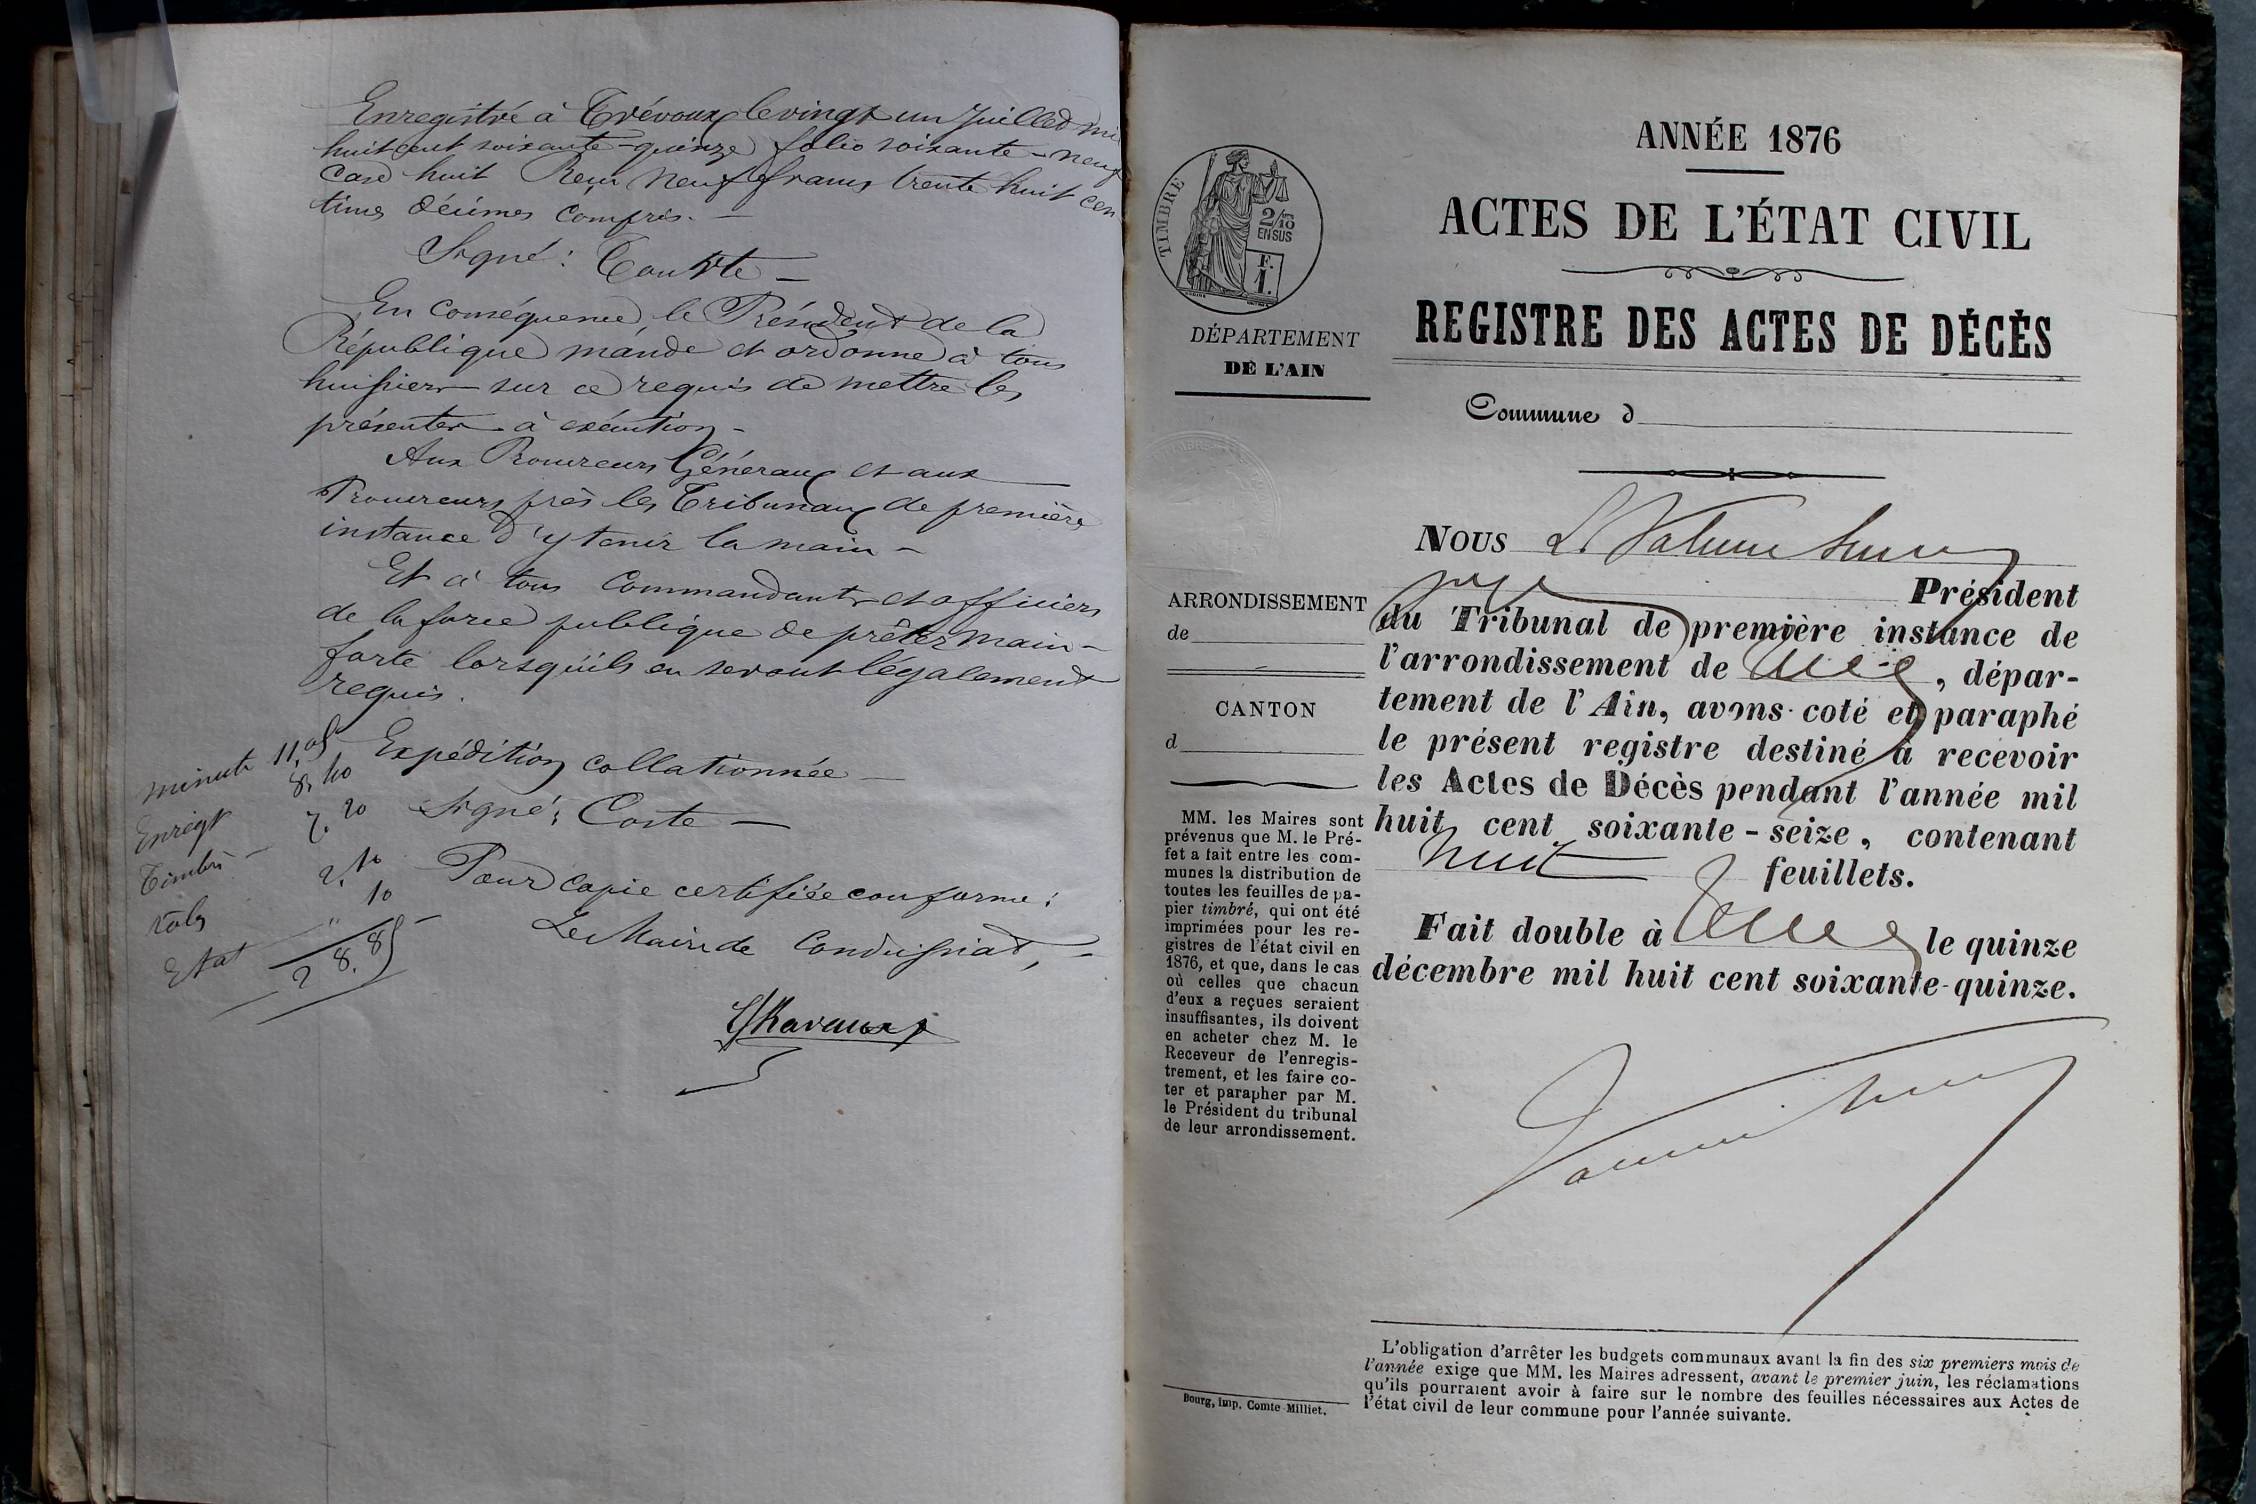 Enregistré à Trévoux le vingt un juillet mil
huit cent soixante-quinze folio soixante-neuf
case huit Reçu neuf francs trente huit cen-
times décimes compris. —
Signé :
En conséquence le Président de la
République mande et ordonne à tous
huissiers sur ce requis de mettre les
présentes à exécution -
Aux Procureurs Généraux et aux
Procureurs près les Tribunaux de première
instance d'y tenir la main -
Et à tous Commandants et officiers
de la force publique de prêter main-
forte lorsqu'ils en seront légalement
requis.
minute 11,05
Enregt 8,40
Timbre — 7,20
rôles 2,10
Etat — " 10
28.85
Expédition collationnée —
Signé : Coste —
Pour copie certifiée conforme :
Le Maire de Condeissiat,
ANNÉE 1876
ACTES DE L'ÉTAT CIVIL
REGISTRE DES ACTES DE DÉCÈS
TIMBRE
2/10
EN SUS
F.
1.
DÉPARTEMENT
DE L'AIN
Commune d
ARRONDISSEMENT
de
CANTON
d
MM. les Maires sont
prévenus que M. le Pré-
fet a fait entre les com-
munes la distribution de
toutes les feuilles de pa-
pier timbré, qui ont été
imprimées pour les re-
gistres de l'état civil en
1876, et que, dans le cas
où celles que chacun
d'eux a reçues seraient
insuffisantes, ils doivent
en acheter chez M. le
Receveur de l'enregis-
trement, et les faire co-
ter et parapher par M.
le Président du tribunal
de leur arrondissement.
Bourg, imp. Comte-Milliet.
NOUS
juge Président
du Tribunal de première instance de
l'arrondissement de , dépar-
tement de l'Ain, avons coté et paraphé
le présent registre destiné à recevoir
les Actes de Décès pendant l'année mil
huit cent soixante-seize, contenant
huit feuillets.
Fait double à le quinze
décembre mil huit cent soixante-quinze.
L'obligation d'arrêter les budgets communaux avant la fin des six premiers mois de
l'année exige que MM. les Maires adressent, avant le premier juin, les réclamations
qu'ils pourraient avoir à faire sur le nombre des feuilles nécessaires aux Actes de
l'état civil de leur commune pour l'année suivante.